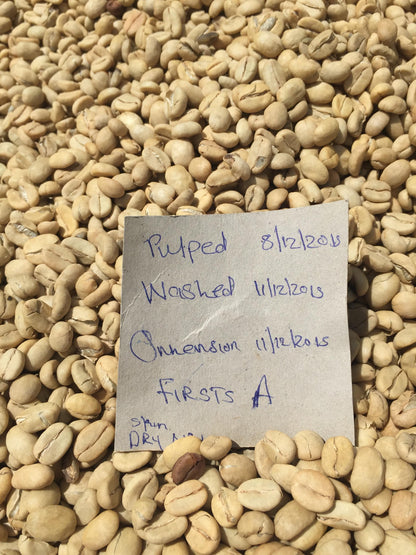 Pulped 8/12/2015
Washed 11/12/2015
Immension 11/12/2015
FIRSTS A
DRY